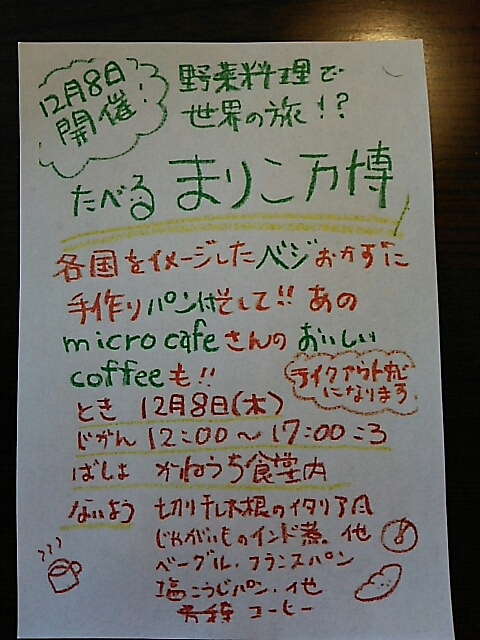 12月8日
開催!
野菜料理で
世界の旅!?
たべる まりこ万博
各国をイメージしたベジおかずに
手作りパン付きして!! あの
micro cafeさんの おいしい
coffeeも!!
テイクアウトカップ
になります
とき 12月8日(木)
じかん 12:00〜17:00ころ
ばしょ かねうち食堂内
ないよう 切り干し大根のイタリア風
じゃがいものインド煮。他
ベーグル、フランスパン
塩こうじパン、他
コーヒー